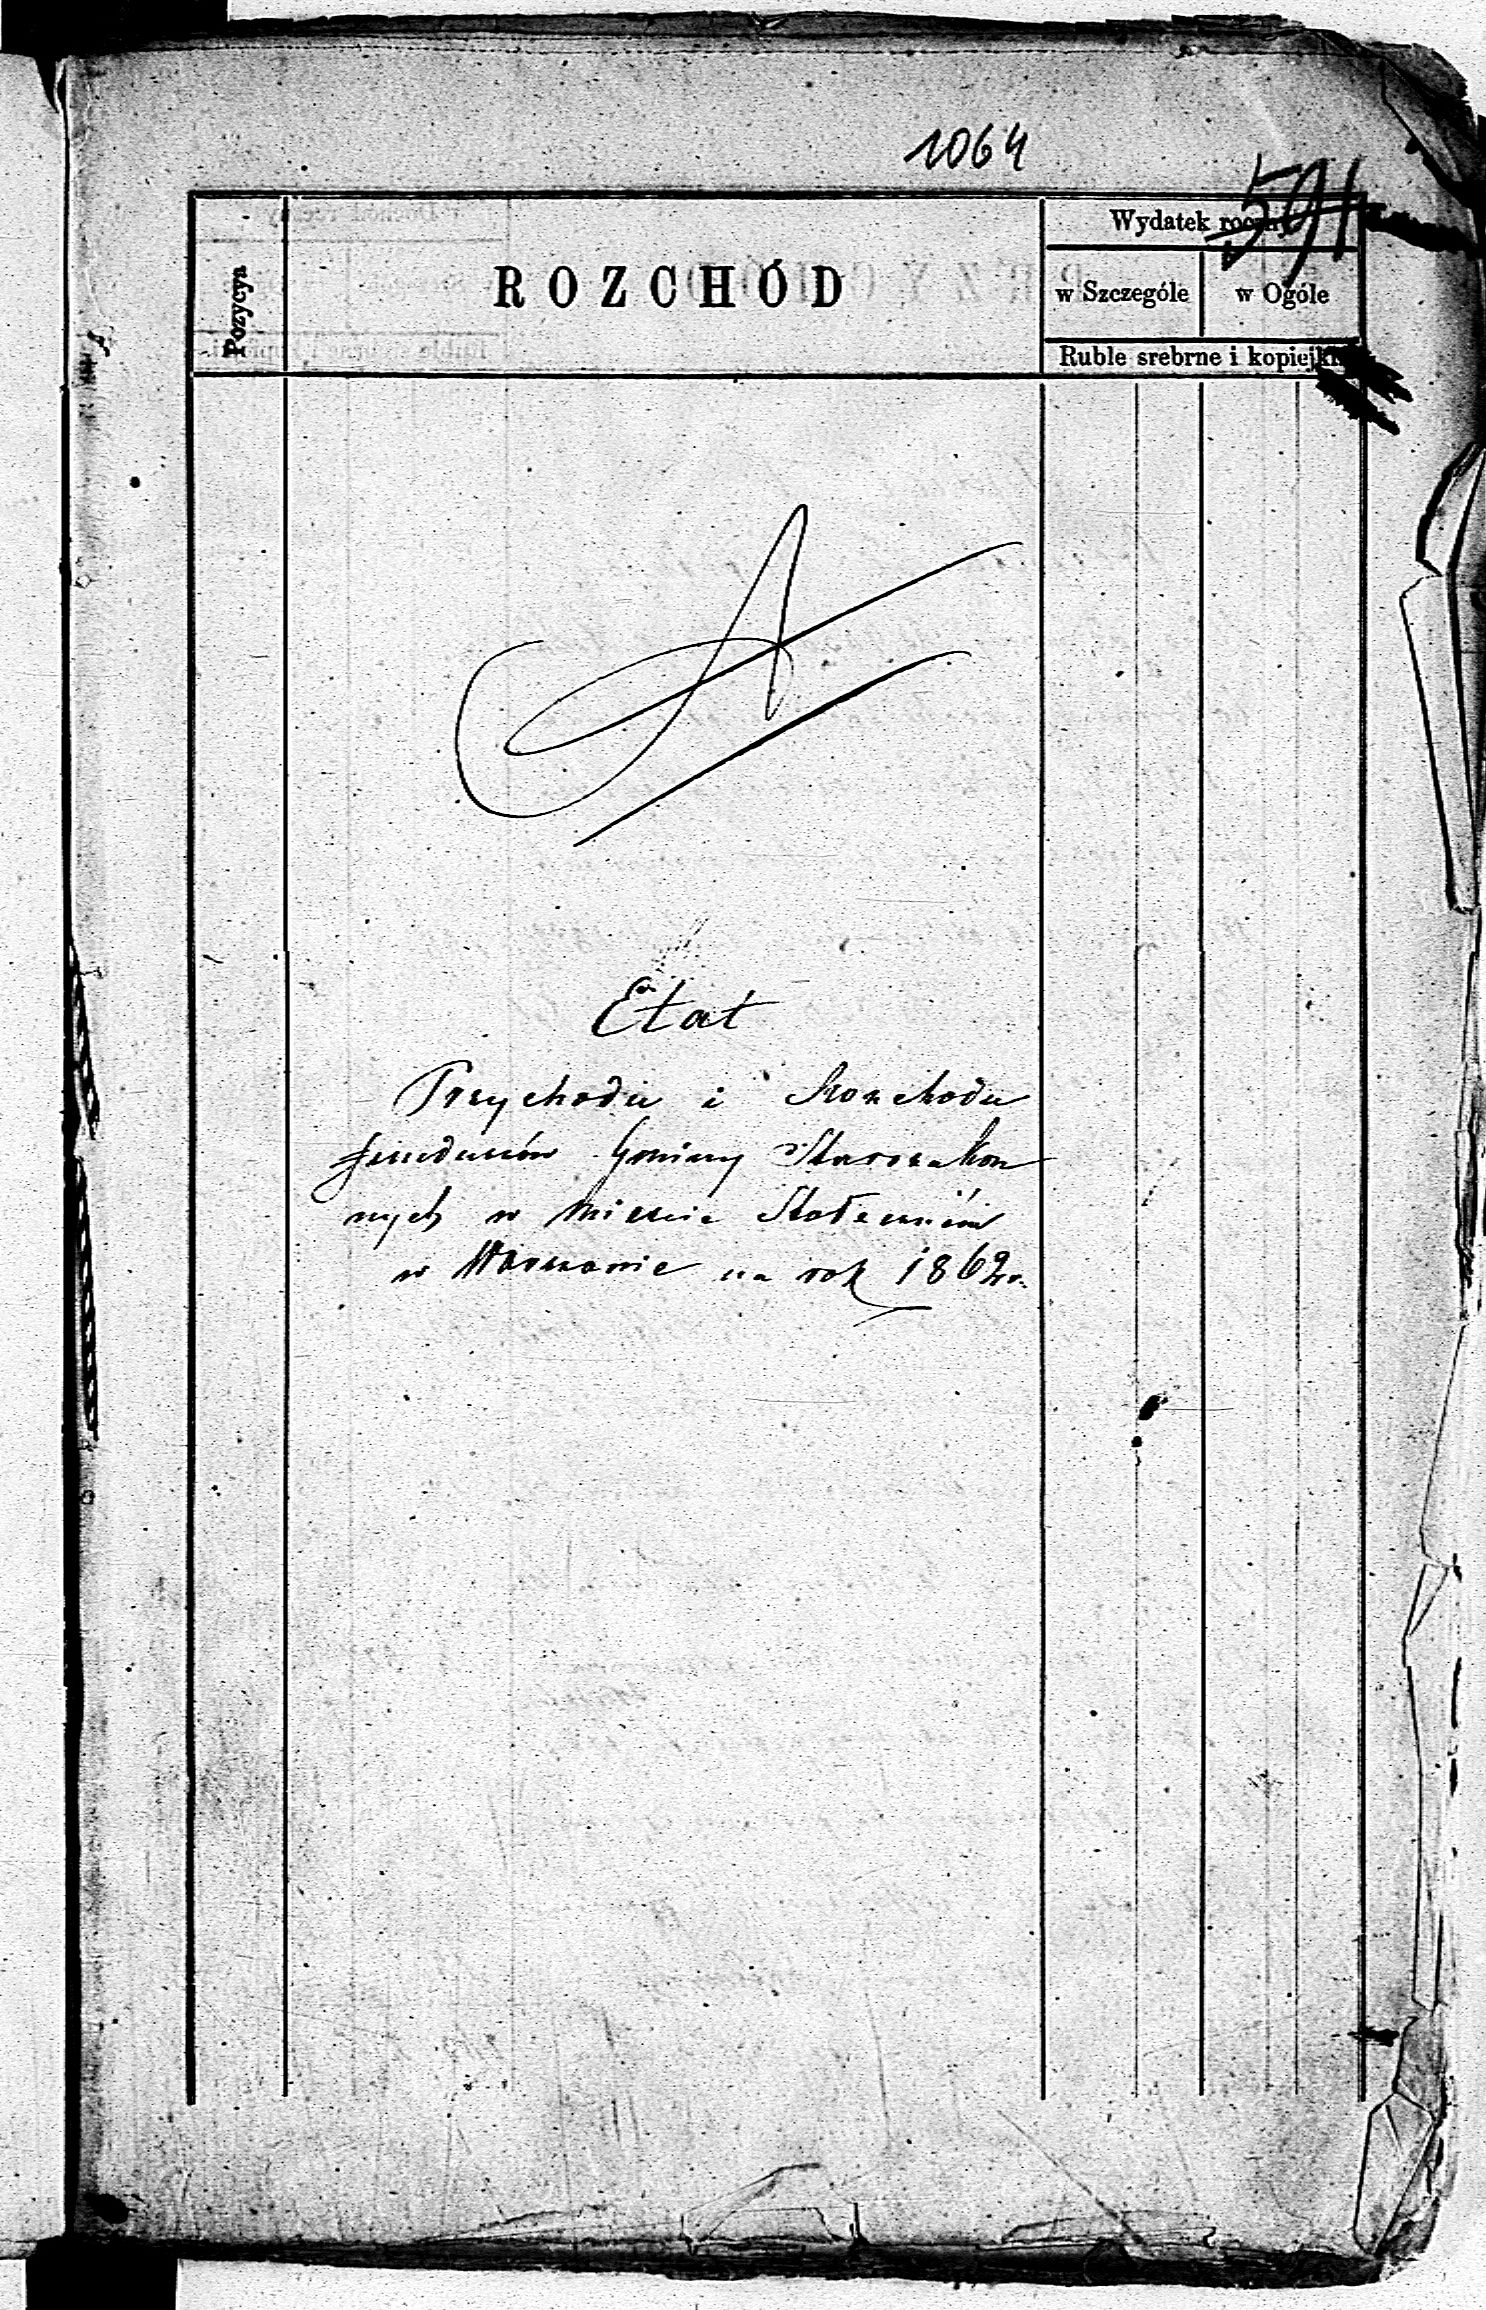 1064
591
Pozycya
ROZCHÓD
Wydatek roczny
w Szczególe
w Ogóle
Ruble srebrne i kopiejki
A
Etat
Przychodu i Rozchodu
funduszów Gminy Starozakon
nych w Mieście Stołeczném
w Warszawie na rok 1862 r.